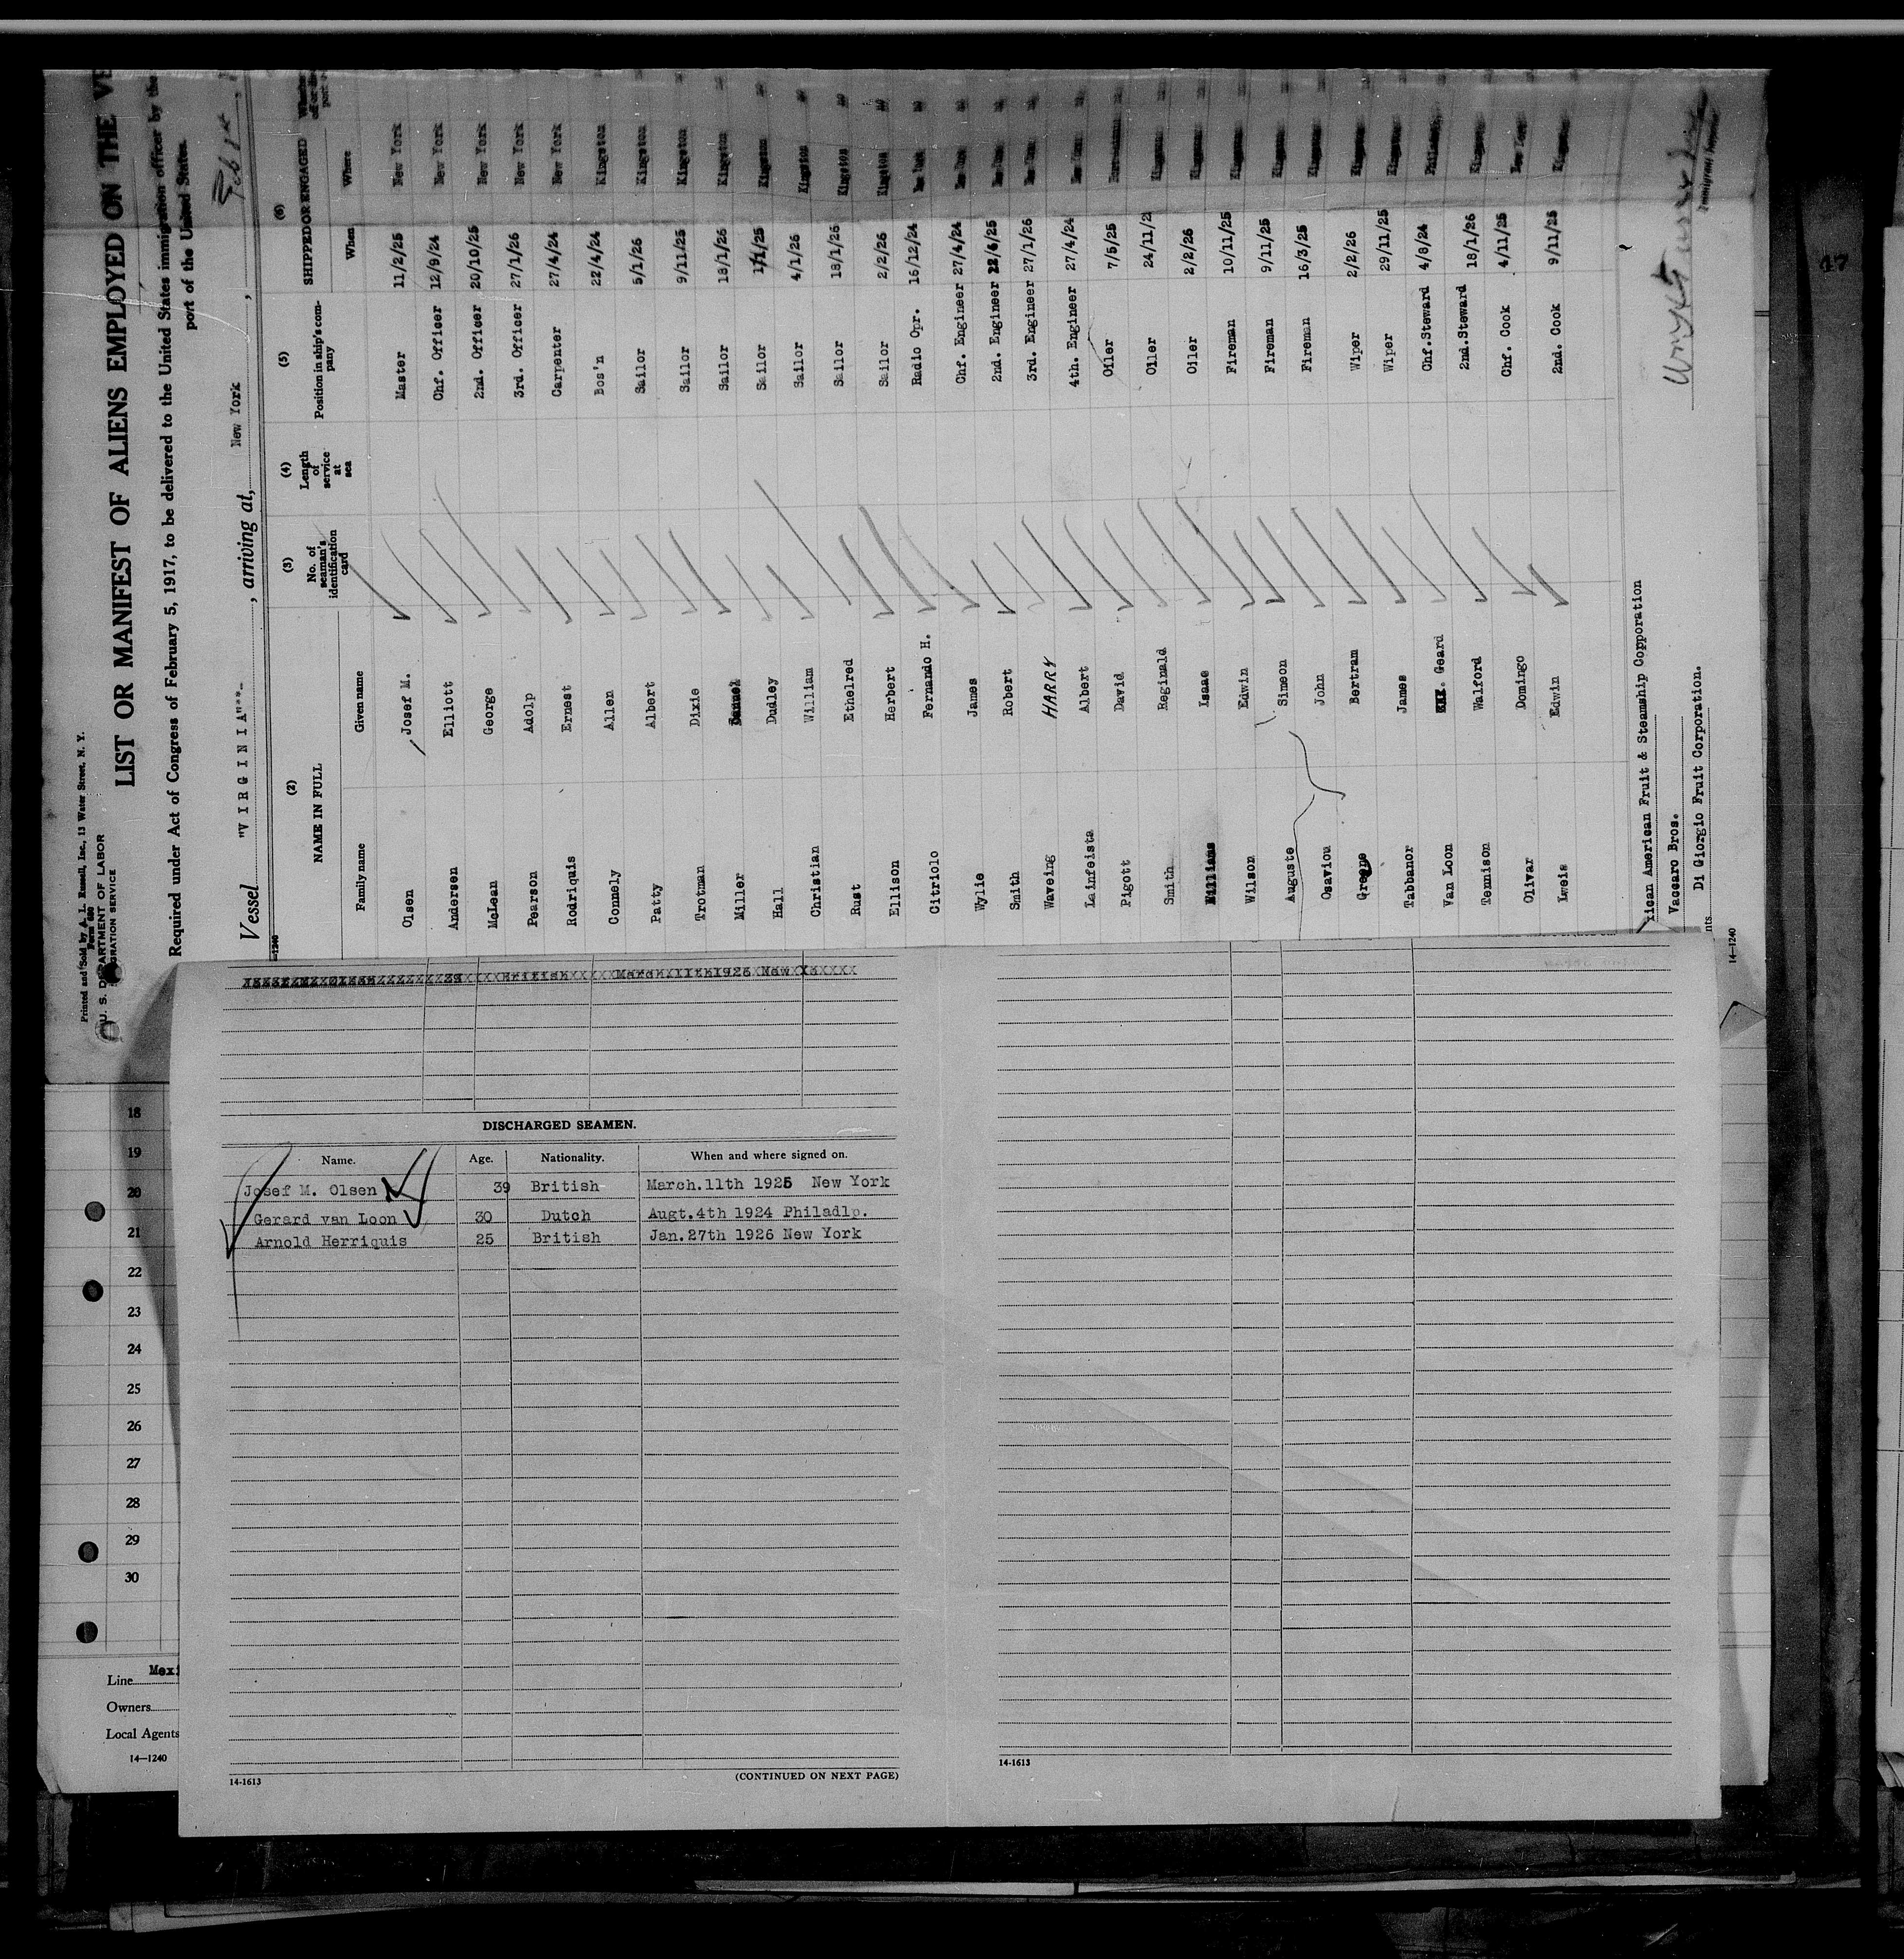 Printed and Sold by A. L. Russell, Inc., 13 Water Street, N. Y.
Form 680
U. S. DEPARTMENT OF LABOR
IMMIGRATION SERVICE
LIST OR MANIFEST OF ALIENS EMPLOYED ON THE
Required under Act of Congress of February 5, 1917, to be delivered to the United States immigration officer by the
port of the United States.
Vessel "V I R G I N I A" , arriving at, New York ,
(2) (3) (4) (5) (6)
NAME IN FULL No. of seaman's identification card Length of service at sea Position in ship's company SHIPPED OR ENGAGED
Family name Given name When Where
Olsen Josef M. Master 11/2/25 New York
Andersen Elliott Chf. Officer 12/9/24 New York
McLean George 2nd. Officer 20/10/25 New York
Pearson Adolp 3rd. Officer 27/1/26 New York
Rodriquis Ernest Carpenter 27/4/24 New York
Connely Allen Bos'n 22/4/24 Kingston
Patty Albert Sailor 5/1/26 Kingston
Trotman Dixie Sailor 9/11/25 Kingston
Miller Sailor 18/1/26 Kingston
Hall Dudley Sailor 1/1/25 Kingston
Christian William Sailor 4/1/26 Kingston
Rust Ethelred Sailor 18/1/26 Kingston
Ellison Herbert Sailor 2/2/26 Kingston
Citriolo Fernando H. Radio Opr. 16/12/24 New York
Wylie James Chf. Engineer 27/4/24 New York
Smith Robert 2nd. Engineer 22/4/25 New York
Waveing HARRY 3rd. Engineer 27/1/26 New York
Leinfeista Albert 4th. Engineer 27/4/24 New York
Pigott David Oiler 7/5/25
Smith Reginald Oiler 24/11/2 Kingston
Williams Isaac Oiler 2/2/26 Kingston
Wilson Edwin Fireman 10/11/25 Kingston
Auguste Simeon Fireman 9/11/25 Kingston
Osaviou John Fireman 16/3/25 Kingston
Greene Bertram Wiper 2/2/26 Kingston
Tabbanor James Wiper 29/11/25 Kingston
Van Loon Geard Chf.Steward 4/8/24
Tennison Walford 2nd.Steward 18/1/26 Kingston
Olivar Domingo Chf. Cook 4/11/25 New York
Lweis Edwin 2nd. Cook 9/11/25 Kingston
xican American Fruit & Steamship Copporation
Vaccaro Bros.
nts Di Giorgio Fruit Corporation.
Immigrant Inspector
14—1240
47
18
19
20
21
22
23
24
25
26
27
28
29
30
Line Mexi
Owners
Local Agents
14—1240
DISCHARGED SEAMEN.
Name. Age. Nationality. When and where signed on.
Josef M. Olsen 39 British March.11th 1925 New York
Gerard van Loon 30 Dutch Augt.4th 1924 Philadlp.
Arnold Herriquis 25 British Jan.27th 1926 New York
14-1613 (CONTINUED ON NEXT PAGE)
14-1613